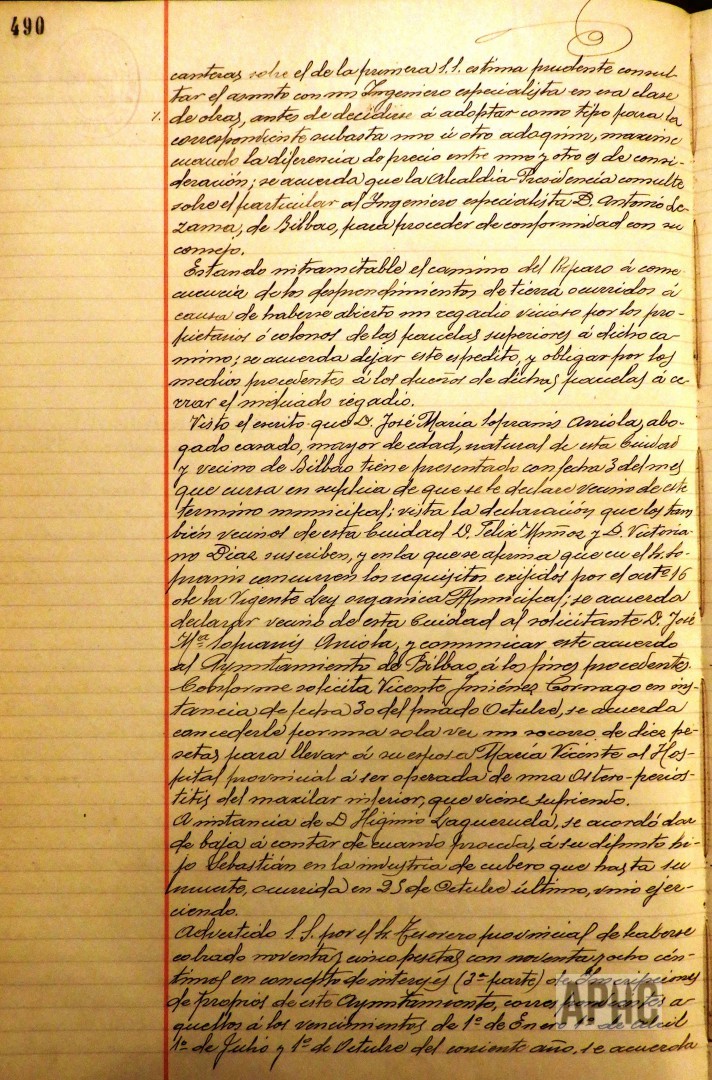 490
canteras sobre el de la primera S.S. estima prudente consul-
tar el asunto con un Ingeniero especialista en esa clase
de obras, antes de decidirse á adoptar como tipo para la
correspondiente subasta uno ú otro adoquin, maxime
cuando la diferencia de precio entre uno y otro es de consi-
deración; se acuerda que la Alcaldia-Presidencia consulte
sobre el particular al Ingeniero especialista D. Antonio Le-
zama, de Bilbao, para proceder de conformidad con su
consejo.
Estando intramitable el camino del Reparo á conse
cuencia de los desprendimientos de tierra ocurridos á
causa de haberse abierto un regadio vicioso por los pro-
pietarios ó colonos de las parcelas superiores á dicho ca-
mino; se acuerda dejar este espedito, y obligar por los
medios procedentes á los dueños de dichas parcelas á ce-
rrar el iniciado regadio.
Visto el escrito que D. José Maria Sopranis Arriola, abo-
gado casado, mayor de edad, natural de esta Ciudad
y vecino de Bilbao tiene presentado con fecha 3 del mes
que cursa en suplica de que se le declare vecino de este
termino municipal; vista la declaración que los tam
bién vecinos de esta Ciudad D. Felix Muñoz y D. Victoria-
no Diaz suscriben, y en la que se afirma que en el Sr. So-
pranis concurren los requisitos exijidos por el artº 16
de la Vigente Ley organica Municipal; se acuerda
declarar vecino de esta Ciudad al solicitante D. José
Mª Sopranis Arriola, y comunicar este acuerdo
al Ayuntamiento de Bilbao á los fines procedentes.
Conforme solicita Vicente Jiménez Cornago en ins-
tancia de fecha 30 del pasado Octubre, se acuerda
concederle por una sola vez un socorro de diez pe-
setas para llevar á su esposa María Vicente al Hos-
pital provincial á ser operada de una Osteo-periós-
titis del maxilar inferior, que viene sufriendo.
A instancia de D Higinio Laqueruela, se acordó dar
de baja á contar de cuando proceda, á su difunto hi-
jo Sebastián en la industria de cubero que hasta su
muerte, ocurrida en 25 de Octubre último, vino ejer-
ciendo.
Advertido S.S. por el Sr. Tesorero provincial de haberse
cobrado noventa y cinco pesetas con noventa y ocho cén-
timos en concepto de intereses (3ª parte) de Inscripciones
de propios de este Ayuntamiento, correspondientes a-
quellos á los vencimientos de 1º de Enero 1º de Abril
1º de Julio y 1º de Octubre del corriente año, se acuerda
APHC